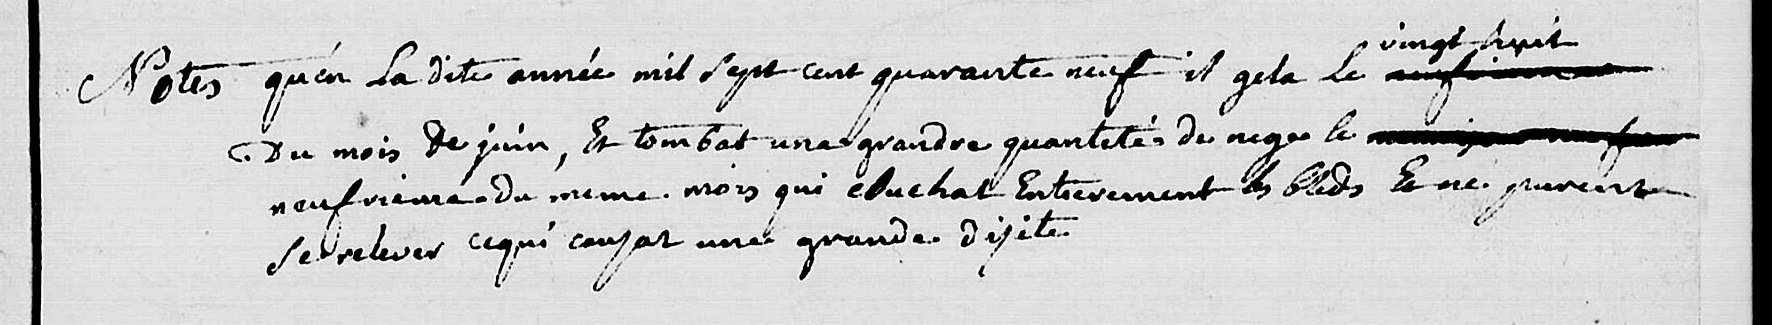 vingt huit
Notes qu'en La dite année mil sept cent quarante neuf il gela le
Du mois de juin, Et tombat une grandre quantetés de nege le
neufvieme du meme mois qui Couchat Entierement les bleds Et ne purent
se relever ce qui causat une grande disete